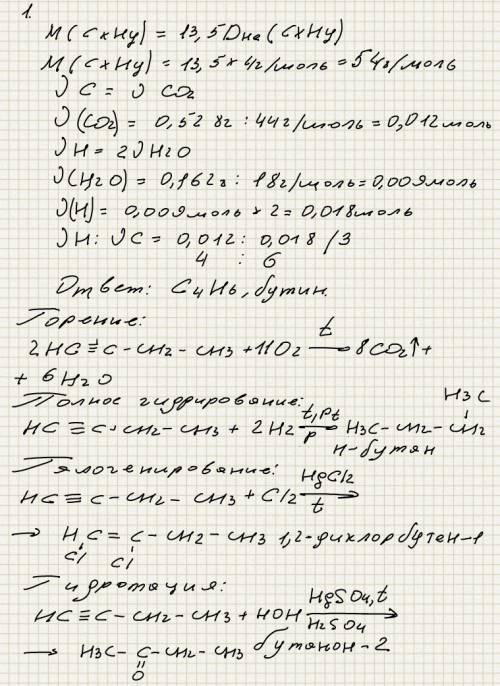 1.
M(CxHy) = 13,5 DHe(CxHy)
M(CxHy) = 13,5 × 4г/моль = 54г/моль
ν C = ν CO2
ν(CO2) = 0,528г : 44г/моль = 0,012моль
ν H = 2ν H2O
ν(H2O) = 0,162г : 18г/моль = 0,009моль
ν(H) = 0,009моль × 2 = 0,018моль
ν H : ν C = 0,012 : 0,018 /3
4 : 6
Ответ: C4H6, бутин.
Горение:
2HC≡C-CH2-CH3 + 11O2 t→ 8CO2↑ +
+ 6H2O
Полное гидрирование:
HC≡C-CH2-CH3 + 2H2 t,Pt→p H3C-CH2-CH2
H3C
н-бутан
Галогенирование:
HC≡C-CH2-CH3 + Cl2 HgCl2→t
→ HC=C-CH2-CH3 1,2-дихлорбутен-1
Cl Cl
Гидротация:
HC≡C-CH2-CH3 + HOH HgSO4,t→H2SO4
→ H3C-C-CH2-CH3 бутанон-2
O